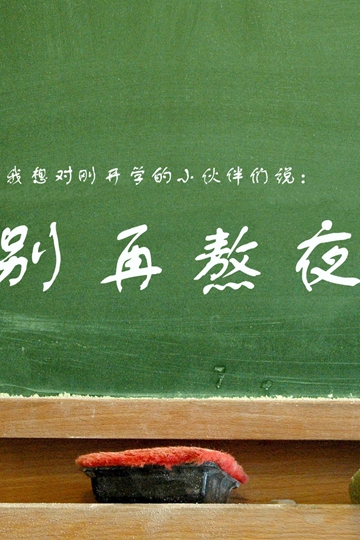 我想对刚开学的小伙伴们说：
别再熬夜